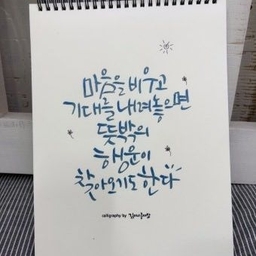 마음을 비우고
기대를 내려놓으면
뜻밖의
행운이
찾아오기도 한다
calligraphy by